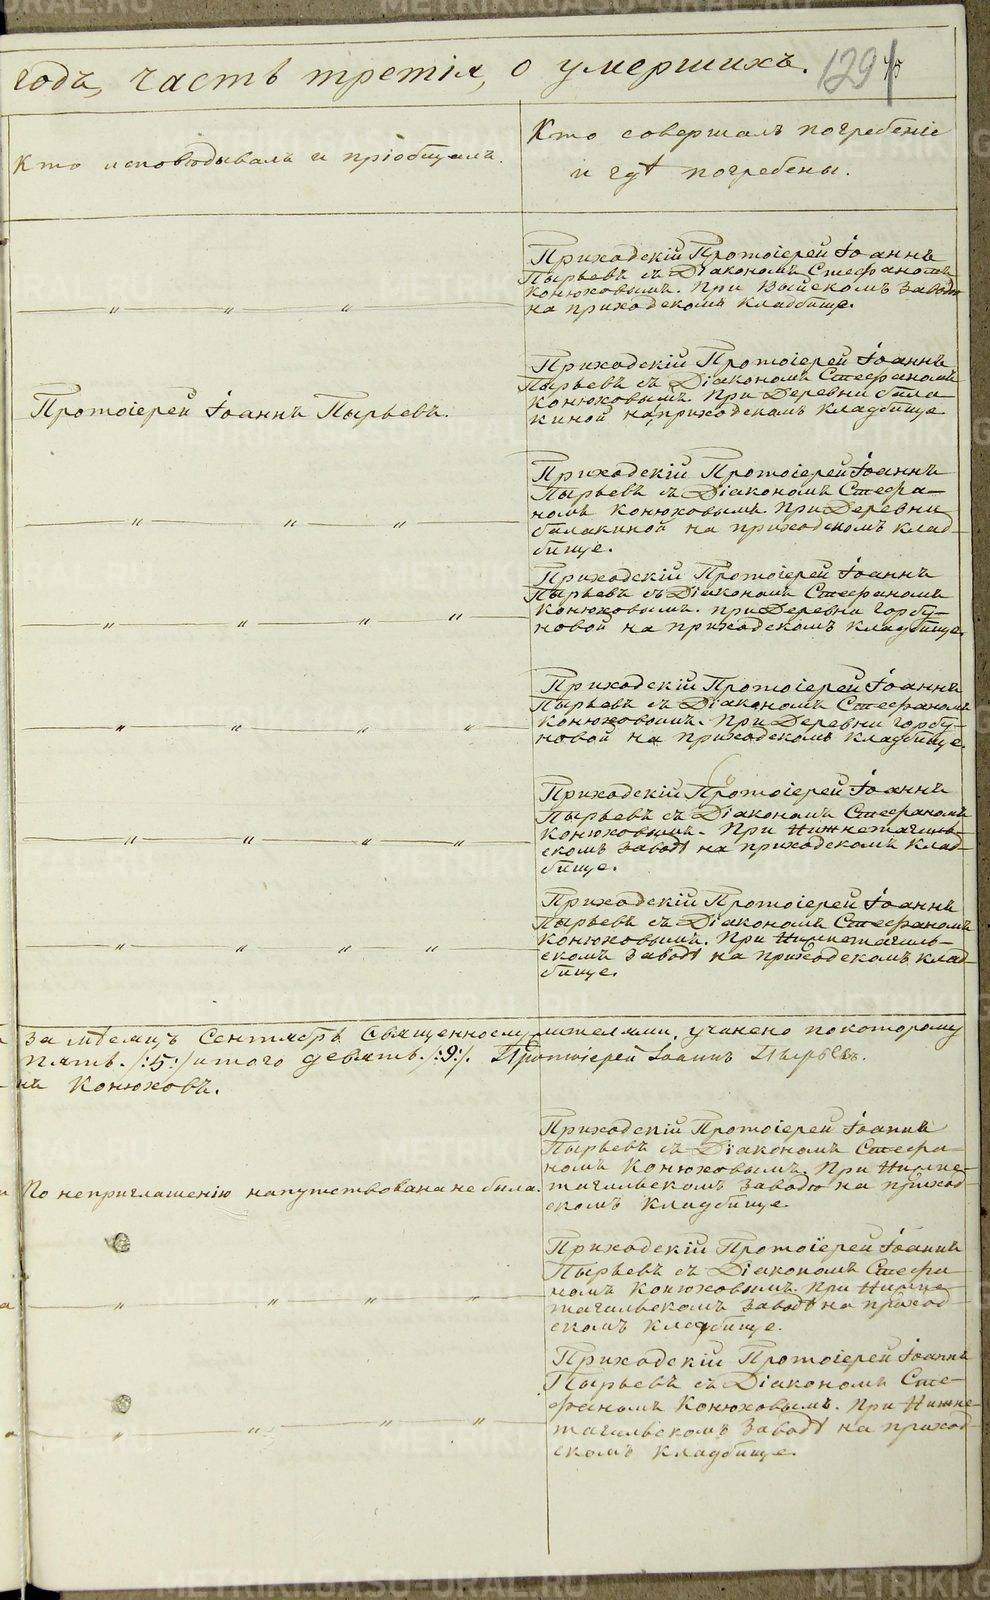 годъ, часть третія, о умершихъ. 129
Кто исповѣдывалъ и пріобщалъ.
Кто совершалъ погребеніе
и гдѣ погребены.
Приходскій Протоіерей Іоаннъ
Пырьевъ съ Діакономъ Стефаномъ
Конюховымъ. При Выйскомъ Заводѣ
на приходскомъ кладбище.
Протоіерей Іоаннъ Пырьевъ.
Приходскій Протоіерей Іоаннъ
Пырьевъ съ Діакономъ Стефаномъ
Конюховымъ. При Деревни
на приходскомъ кладбище
Приходскій Протоіерей Іоаннъ
Пырьевъ съ Діакономъ Стефа-
номъ Конюховымъ. При Деревни
балакиной на приходскомъ клад-
бище.
Приходскій Протоіерей Іоаннъ
Пырьевъ съ Діакономъ Стефаномъ
Конюховымъ. При Деревни Горбу-
новой на приходскомъ кладбище.
Приходскій Протоіерей Іоаннъ
Пырьевъ съ Діакономъ Стефаномъ
Конюховымъ. При Деревни Горбу-
новой на приходскомъ кладбище.
Приходскій Протоіерей Іоаннъ
Пырьевъ съ Діакономъ Стефаномъ
Конюховымъ. При Нижнетагиль-
скомъ Заводѣ на приходскомъ клад-
бище.
Приходскій Протоіерей Іоаннъ
Пырьевъ съ Діакономъ Стефаномъ
Конюховымъ. При Нижнетагиль-
скомъ Заводѣ на приходскомъ клад-
бище.
За мѣсяцъ Сентябрь Священнослужителями, учинено по которому
пять /:5:/ итого девять. /:9:/. Протоіерей Іоаннъ Пырьевъ.
Конюховъ.
По неприглашенію напутствована не была.
Приходскій Протоіерей Іоаннъ
Пырьевъ съ Діакономъ Стефа-
номъ Конюховымъ. При Нижне-
тагильскомъ Заводѣ на приход-
скомъ кладбище
Приходскій Протоіерей Іоаннъ
Пырьевъ съ Діакономъ Стефа-
номъ Конюховымъ. При Нижне-
тагильскомъ Заводѣ на приход-
скомъ кладбище.
Приходскій Протоіерей Іоаннъ
Пырьевъ съ Діакономъ Сте-
фаномъ Конюховымъ. При Нижне-
тагильскомъ Заводѣ на приход-
скомъ кладбище.
METRIKI.GASO-URAL.RU